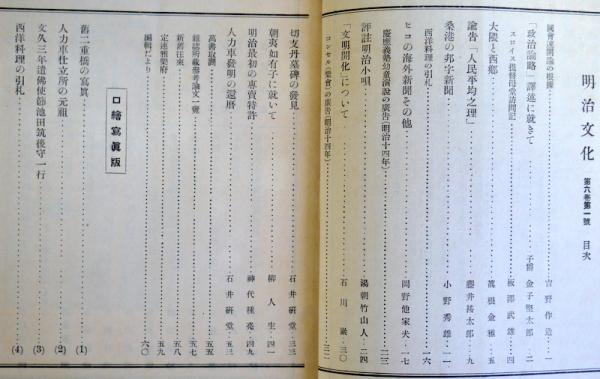 明治文化 第六卷第一號 目次
國會開設論の根據……吉野作造…一
「政治論略」譯述に就きて……子爵 金子堅太郎…二
スロイス提督母堂訪問記……板澤武雄…四
大隈と西郷……萬根金雅…五
諭告「人民平均之理」……藤井甚太郎…九
桑港の邦字新聞……小野秀雄…一一
西洋料理の引札……一六
ヒコの海外新聞その他……岡野他家夫…一七
慶應義塾幼童演說の廣吿(明治十四年)……二三
評註明治小唄……湯朝竹山人…二四
「文明開化」について……石川巖…三〇
コンセル(樂會)の廣吿(明治十四年)……三二
切支丹墓碑の發見……石井研堂…三三
朝夷如有子に就いて……柳人生…四一
明治最初の專賣特許……神代種亮…四九
人力車發明の還曆……石井研堂…五三
萬書取調……五五
雜誌所載藩書論文一覽……五七
新舊往來……五八
定連雅樂府……五九
編輯だより……六〇
口繪寫眞版
舊二重橋の寫眞……(1)
人力車仕立所の元祖……(2)
文久三年遣佛使節池田筑後守一行……(3)
西洋料理の引札……(4)